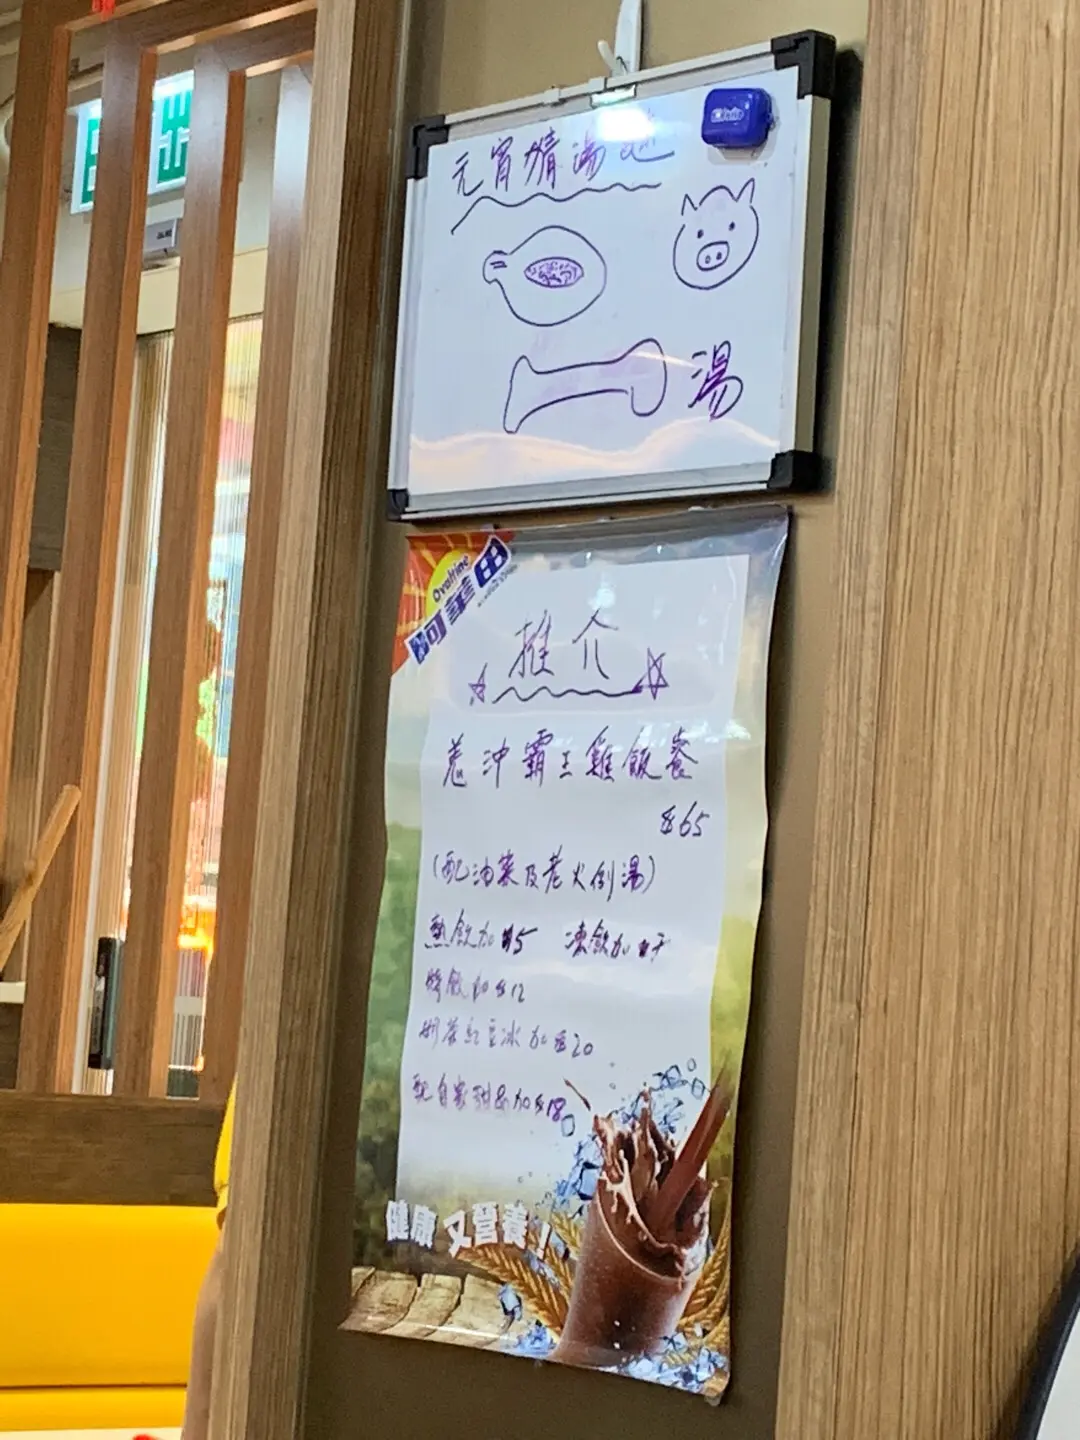 出
元宵猜湯謎
湯
Ovaltine
阿華田
推介
羗冲霸王雞飯餐
$65
(配油菜及老火例湯)
熱飲加$5 凍飲加$7
特飲加$12
茶紅豆冰加$20
配自家甜品加$18
健康 又營養！